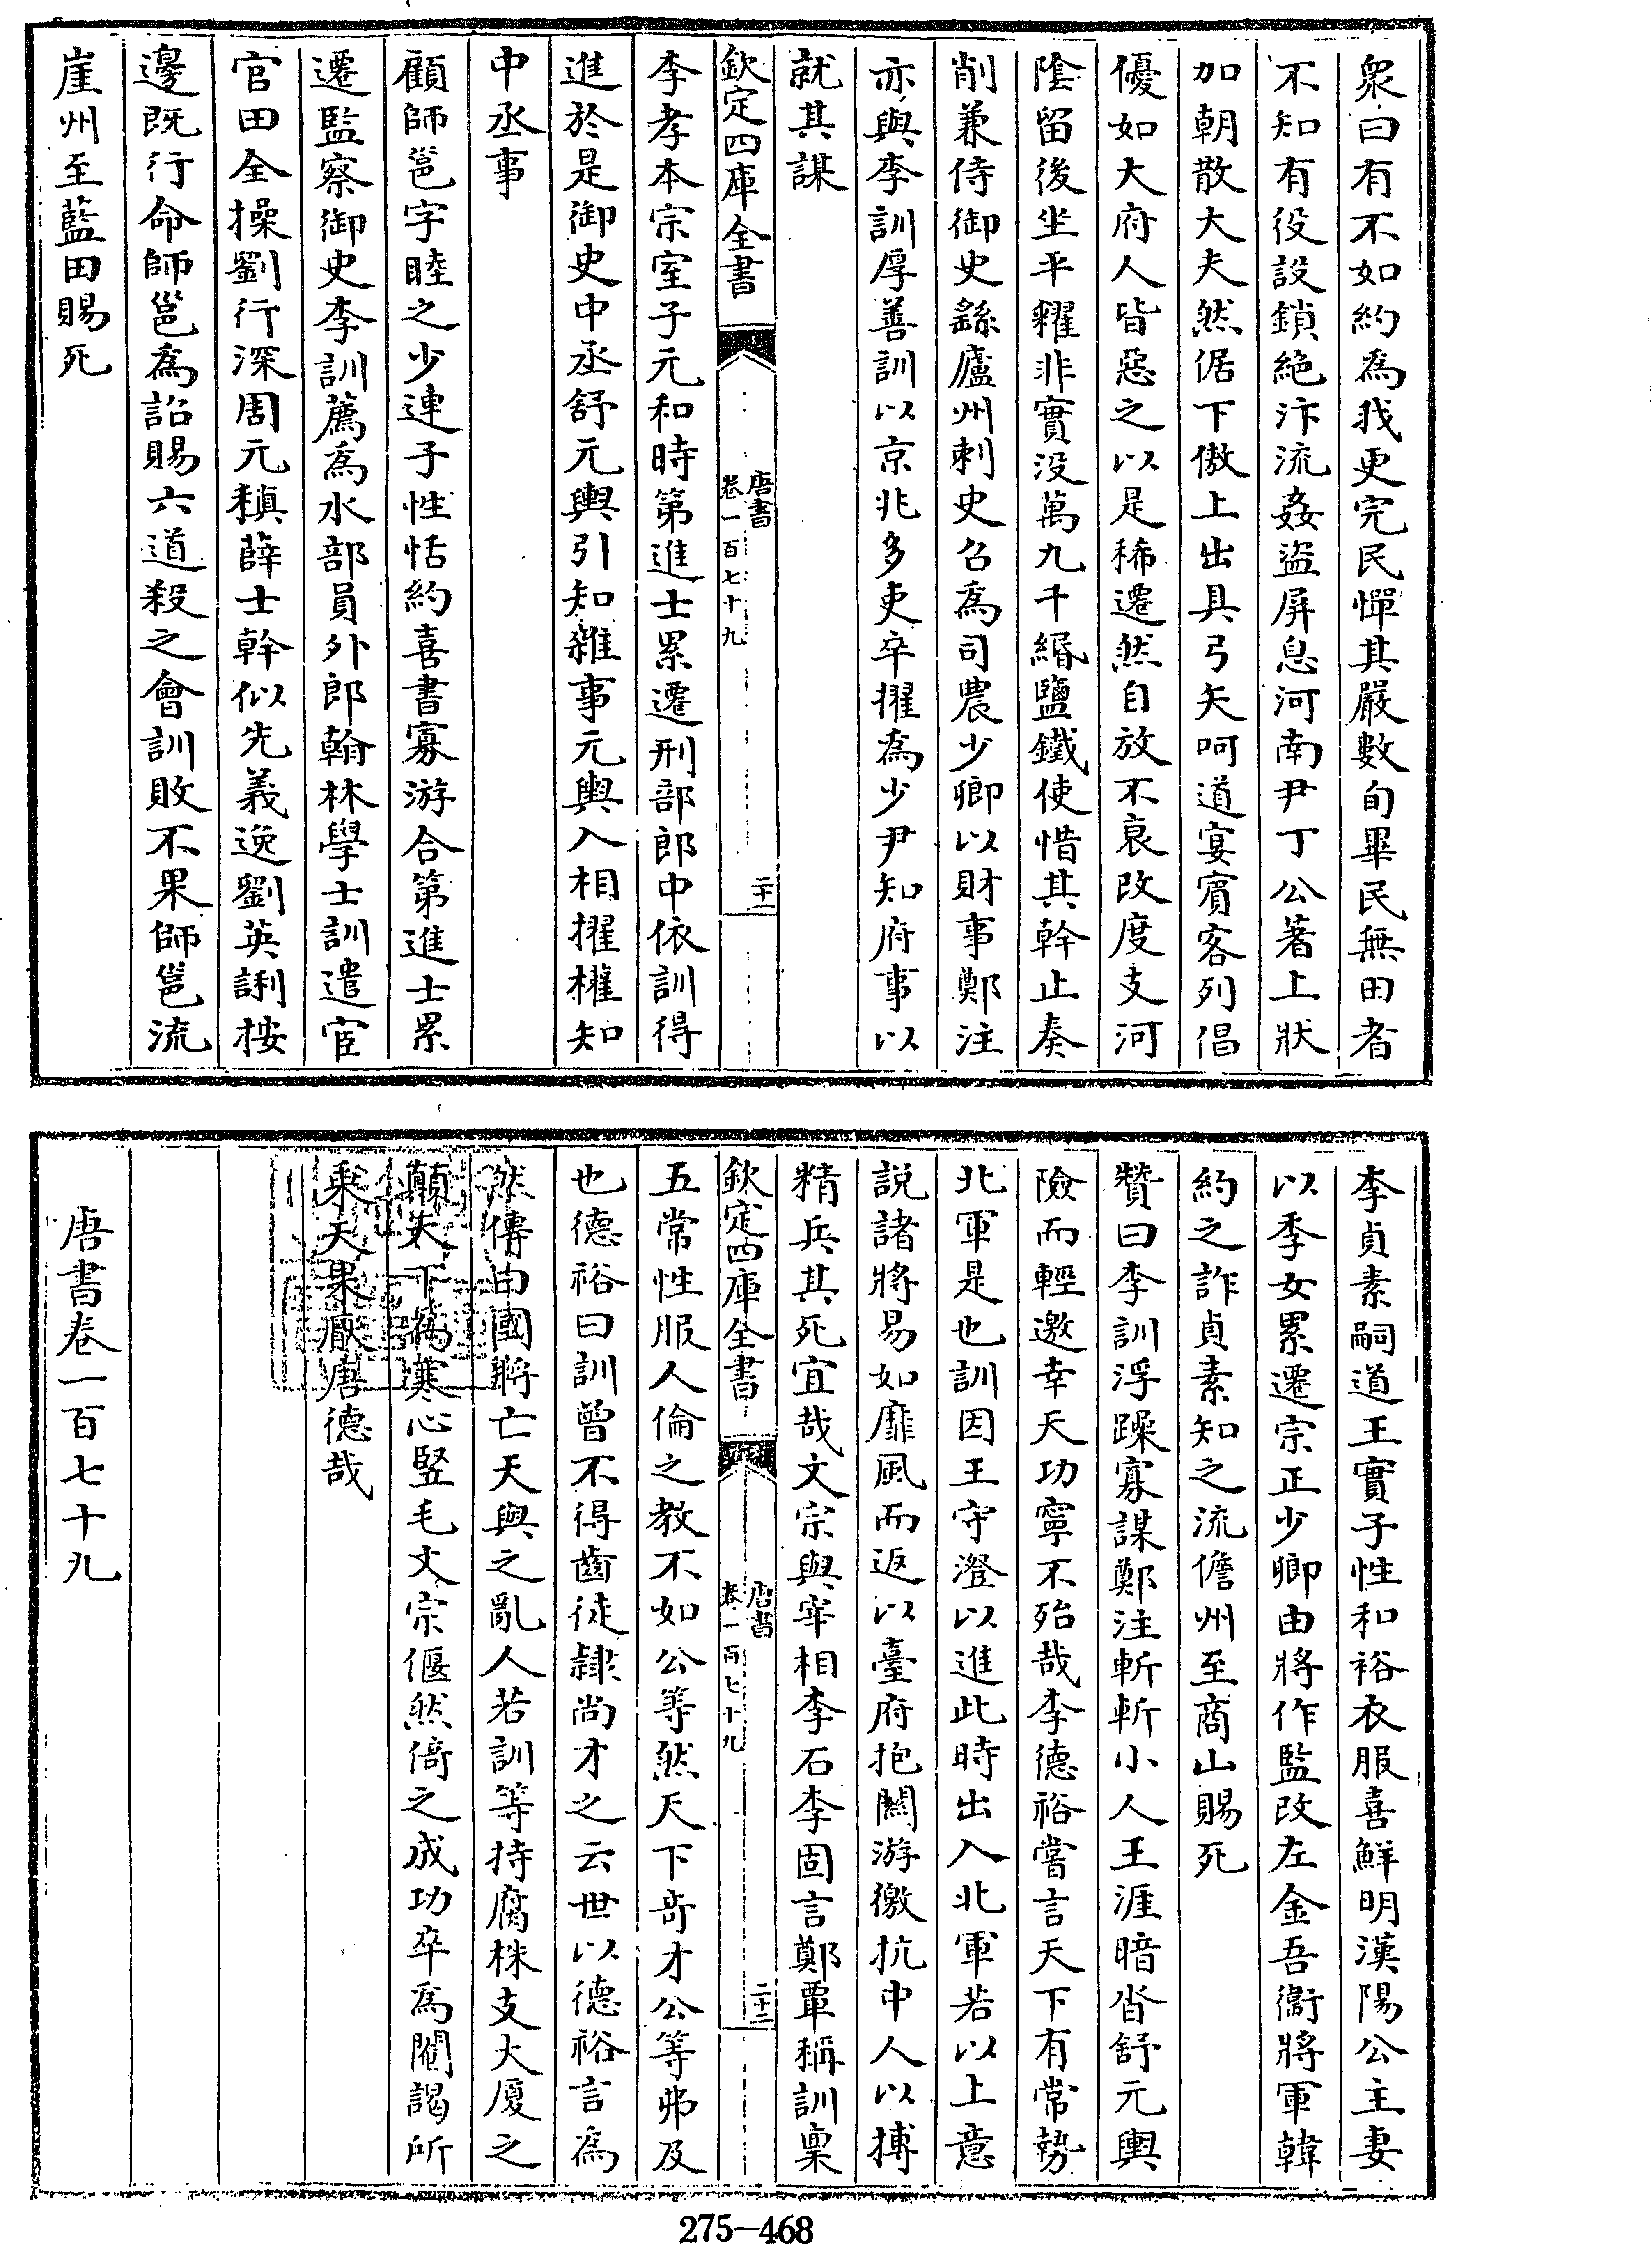 衆曰有不如約爲我更完民憚其嚴數旬畢民無田者
不知有役設鎖絶汴流姦盜屏息河南尹丁公著上狀
加朝散大夫然倨下傲上出具弓矢呵道宴賓客列倡
優如大府人皆惡之以是稀遷然自放不衰改度支河
陰留後坐平糴非實没萬九千緡鹽鐵使惜其幹止奏
削兼侍御史繇廬州刺史召爲司農少卿以財事鄭注
亦與李訓厚善訓以京兆多吏卒擢爲少尹知府事以
就其謀
欽定四庫全書
唐書
卷一百七十九
二十一
李孝本宗室子元和時第進士累遷刑部郎中依訓得
進於是御史中丞舒元輿引知雜事元輿入相擢權知
中丞事
顧師邕字睦之少連子性恬約喜書寡游合第進士累
遷監察御史李訓薦爲水部員外郎翰林學士訓遣宦
官田全操劉行深周元稹薛士幹似先義逸劉英誗桉
邊既行命師邕爲詔賜六道殺之會訓敗不果師邕流
崖州至藍田賜死
李貞素嗣道王實子性和裕衣服喜鮮明漢陽公主妻
以季女累遷宗正少卿由將作監改左金吾衞將軍韓
約之詐貞素知之流儋州至商山賜死
贊曰李訓浮躁寡謀鄭注斬斬小人王涯暗沓舒元輿
險而輕邀幸天功寧不殆哉李德裕嘗言天下有常勢
北軍是也訓因王守澄以進此時出入北軍若以上意
説諸將易如靡風而返以臺府抱關游徼抗中人以搏
精兵其死宜哉文宗與宰相李石李固言鄭覃稱訓稟
欽定四庫全書
唐書
卷一百七十九
二十二
五常性服人倫之教不如公等然天下奇才公等弗及
也德裕曰訓曾不得齒徒隷尚才之云世以德裕言爲
然傳曰國將亡天與之亂人若訓等持腐株支大厦之
顛天下爲寒心豎毛文宗偃然倚之成功卒爲閹謁所
乘天果厭唐德哉
唐書卷一百七十九
275—468